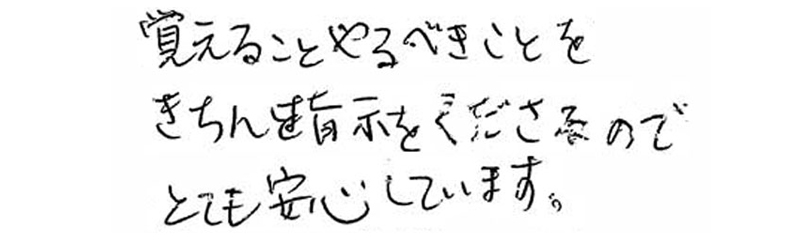 覚えることやるべきことを
きちんと指示をくださるので
とても安心しています。